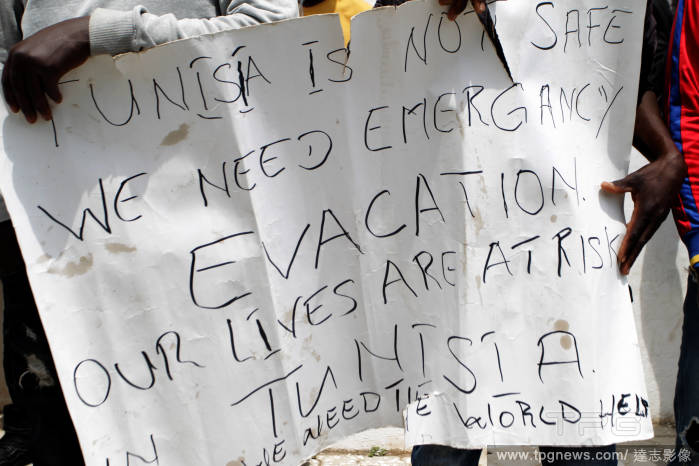 TUNISIA IS NOT SAFE
WE NEED EMERGANCY
EVACATION.
OUR LIVES ARE AT RISK
IN TUNISIA.
WE NEED THE WORLD HELP
TPG
www.tpgnews.com/ 達志影像